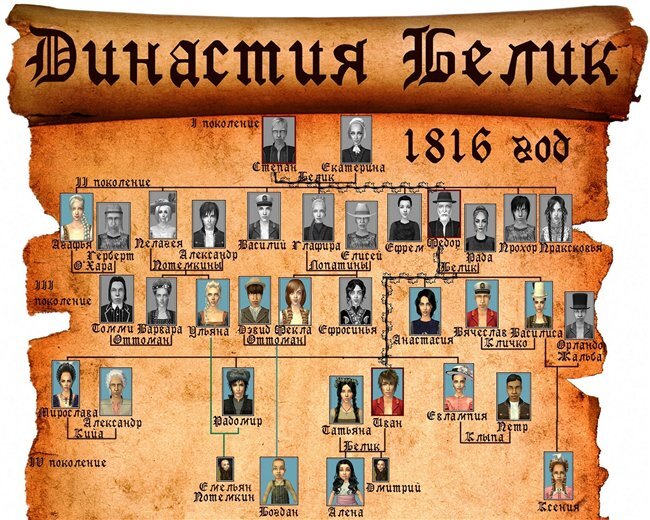 Династия Белик
I поколение
1816 год
Степан
Екатерина
Белик
II поколение
Агафья
Герберт
О'Хара
Пелагея
Александр
Потемкины
Василий
Глафира
Елисей
Лопатины
Ефрем
Федор
Рада
Белик
Прохор
Прасковья
III
поколение
Томми
Варвара
Оттоман
Ульяна
Дэвид
Фекла
Оттоман
Ефросинья
Анастасия
Вячеслав
Василиса
Кличко
Орландо
Жальба
Мирослава
Александр
Кийа
Радомир
Татьяна
Иван
Белик
Евлампия
Петр
Клыпа
IV поколение
Емельян
Потемкин
Богдан
Алена
Дмитрий
Ксения